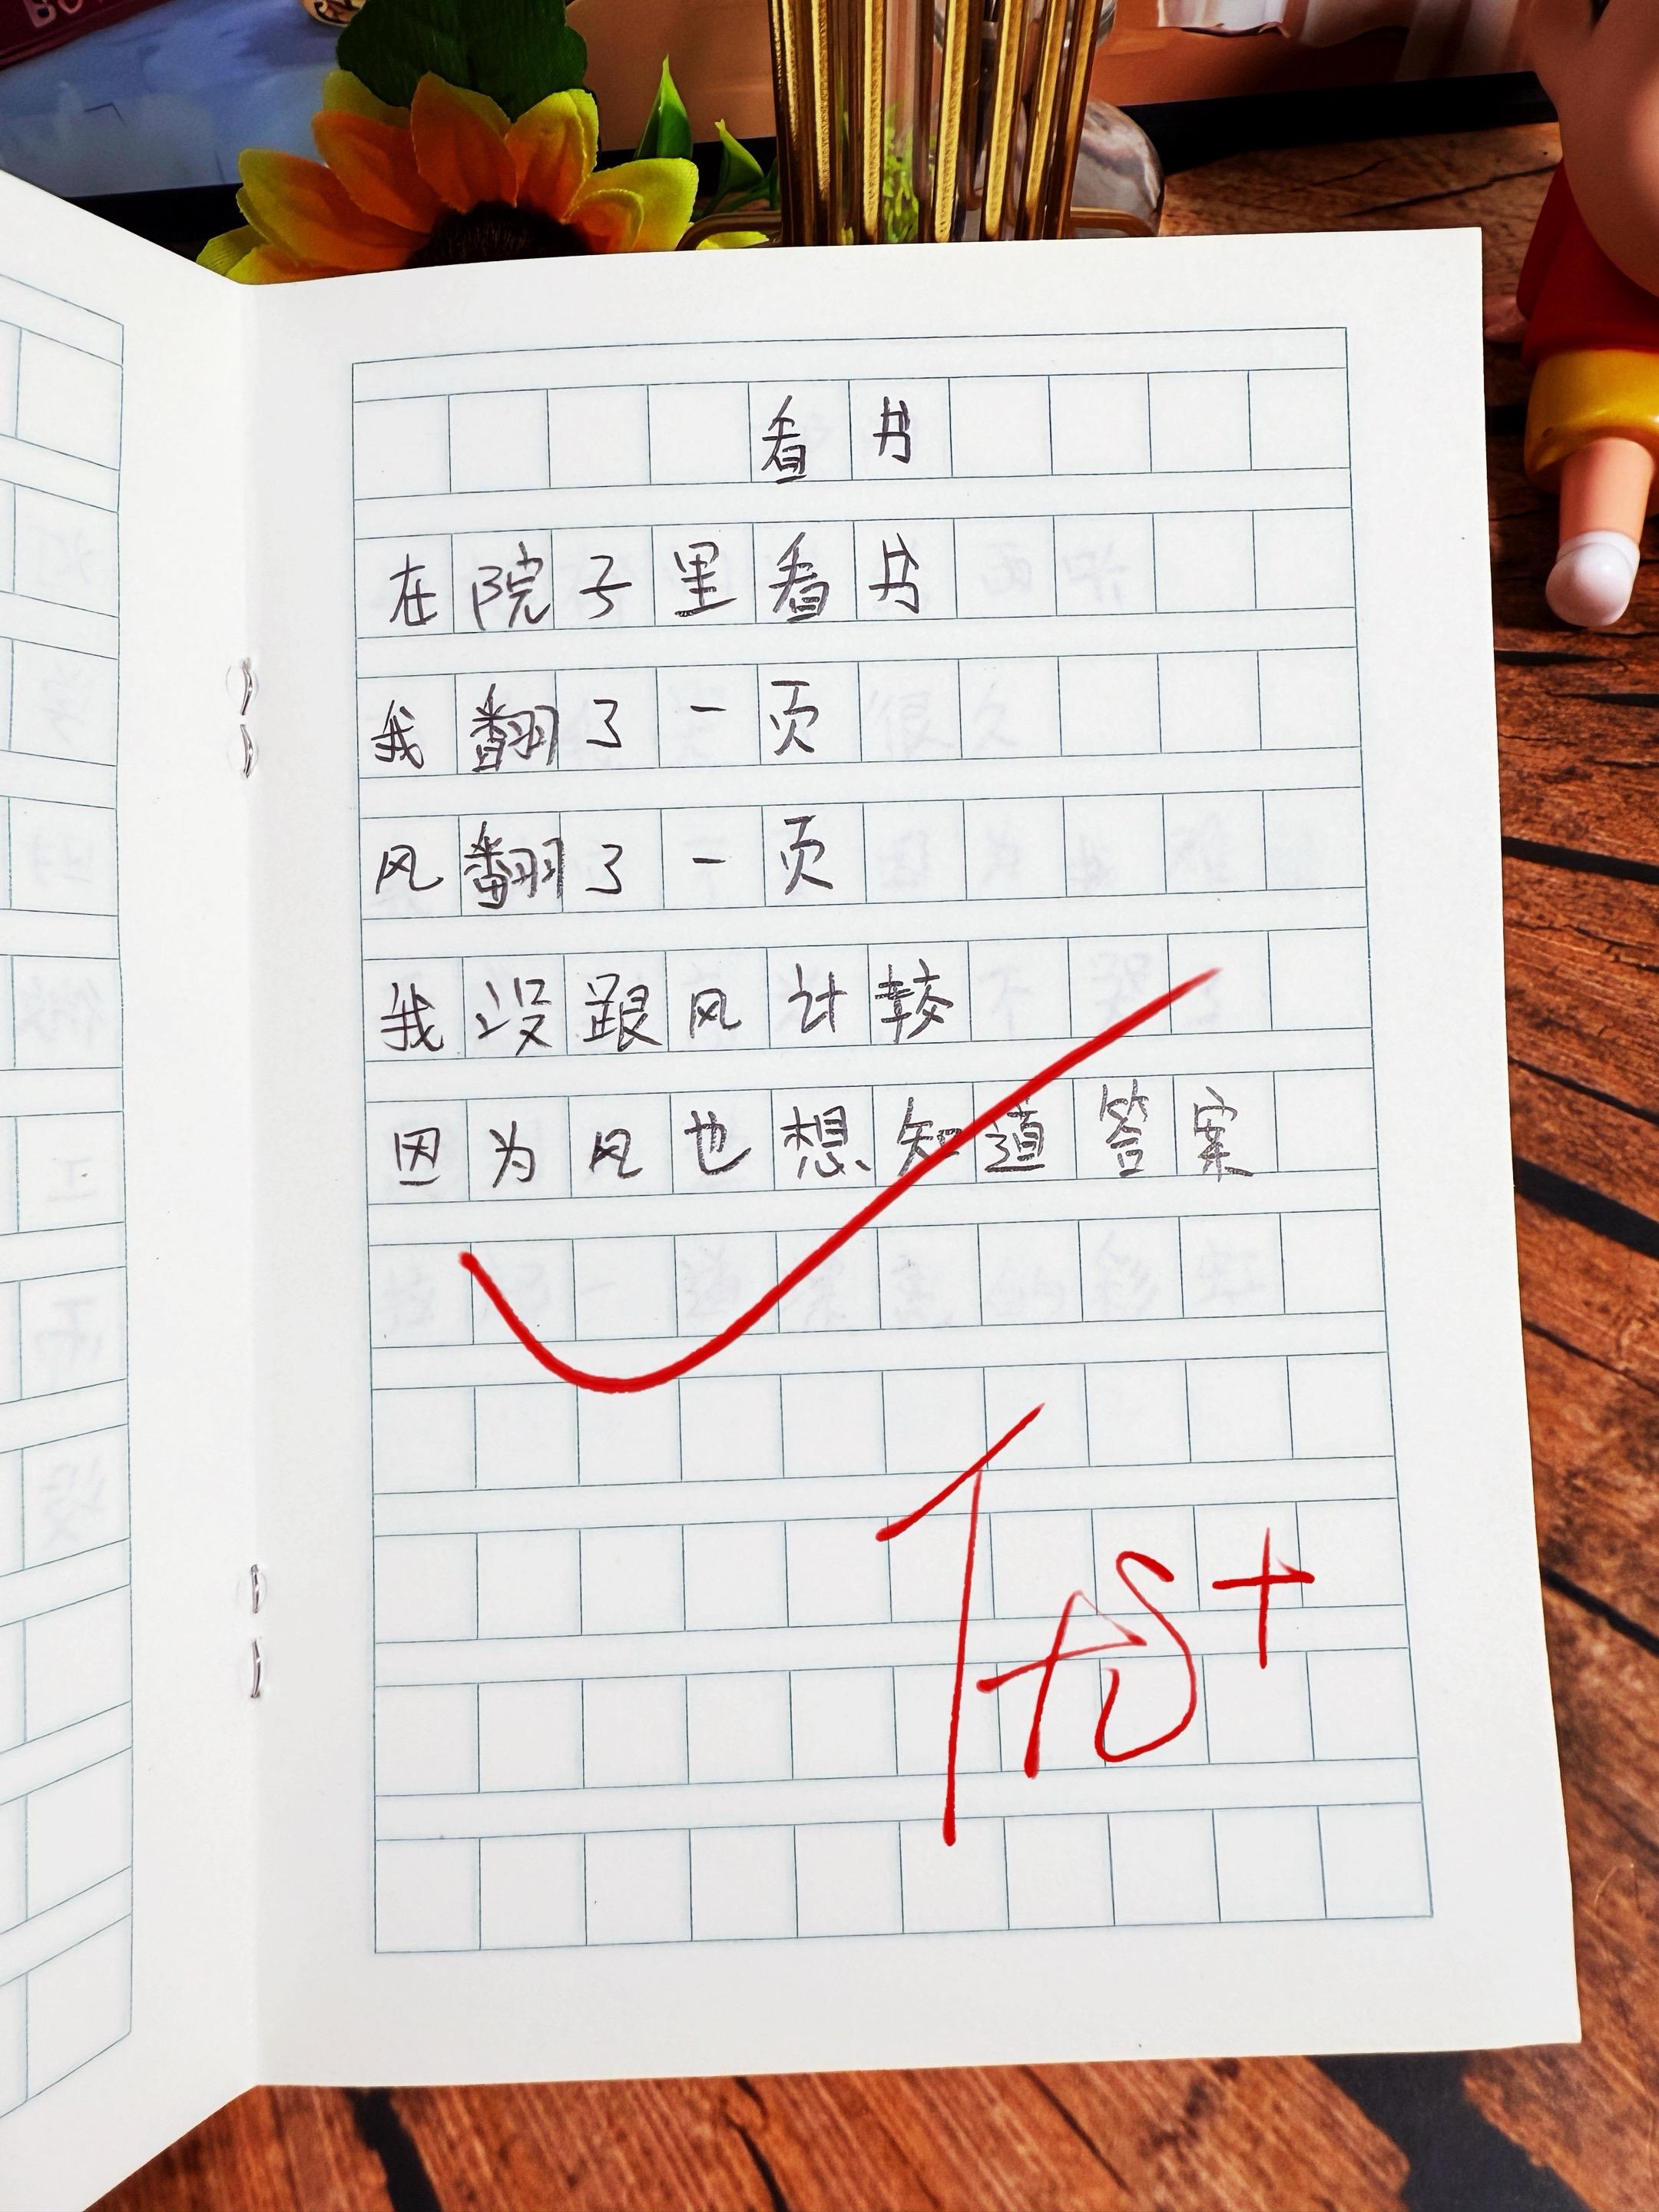 看书
在院子里看书
我翻了一页
风翻了一页
我没跟风计较
因为风也想知道答案